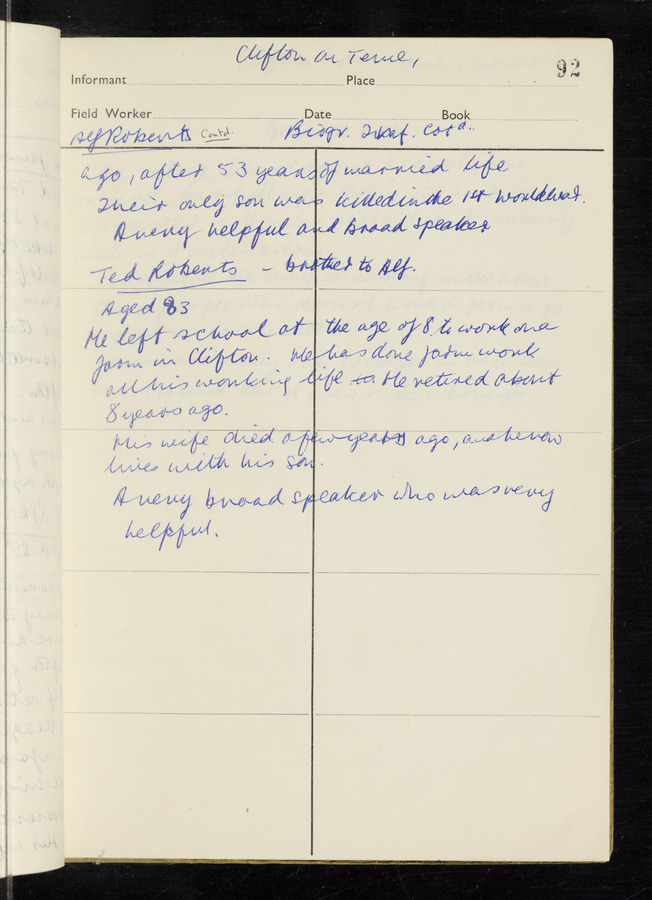 Clifton on Teme,
92
Informant Place
Field Worker Date Book
Alf Roberts Contd. Biogr. Inf. Cotd.
ago, after 53 years of married life
Their only son was killed in the 1st World War.
A very helpful and broad speaker
Ted Roberts - brother to Alf.
Aged 83
He left school at the age of 8, to work on a
farm in Clifton. He has done farm work
all his working life He retired about
8 years ago.
His wife died a few years ago, and he now
lives with his son.
A very broad speaker who was very
helpful.